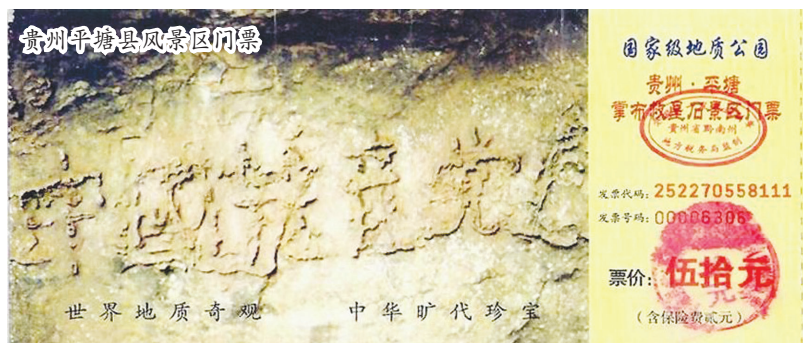 贵州平塘县风景区门票
中國共产党亡
世界地质奇观 中华旷代珍宝
国家级地质公园
贵州·平塘
掌布救星石景区门票
贵州省黔南州
地方税务局监制
发票代码：252270558111
发票号码：00006306
票价：伍拾元
（含保险费贰元）